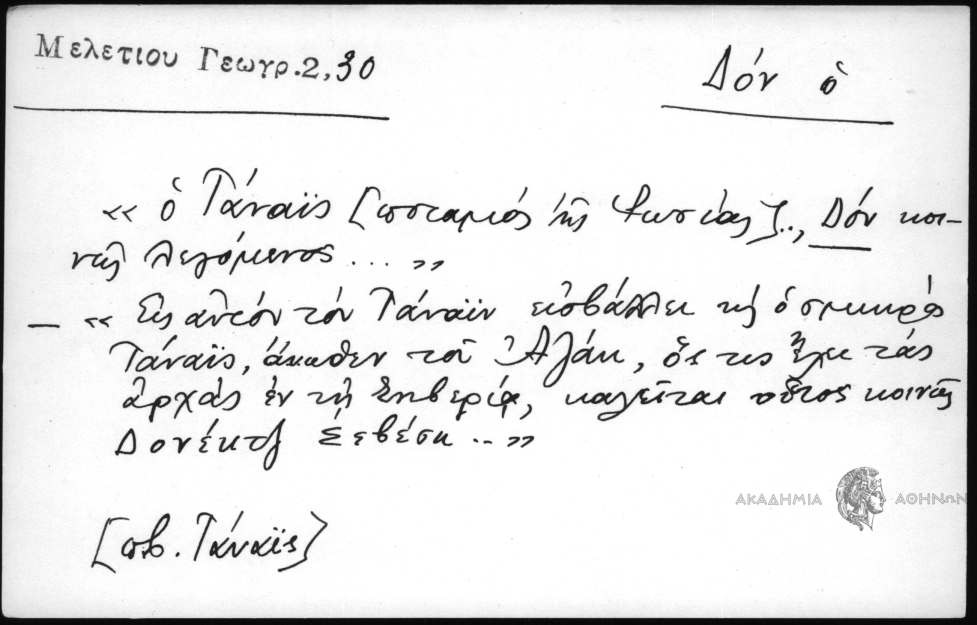 Μελετίου Γεωγρ. 2, 30
Δόν ὁ
« ὁ Τάναϊς [ποταμὸς τῆς Ῥωσίας].., Δόν κοι-
νῶς λεγόμενος ... »
— « Εἰς αὐτόν τόν Τάναϊν εἰσβάλλει καὶ ὁ σμικρός
Τάναϊς, ἄνωθεν τοῦ Ἀζάκ, ὅς τις ἔχει τάς
ἀρχάς ἐν τῇ Σηβερίᾳ, καλεῖται οὗτος κοινῶς
Δονέκτζ Σεβέσκ .. »
[πβ. Τάναϊς]
ΑΚΑΔΗΜΙΑ ΑΘΗΝΩΝ